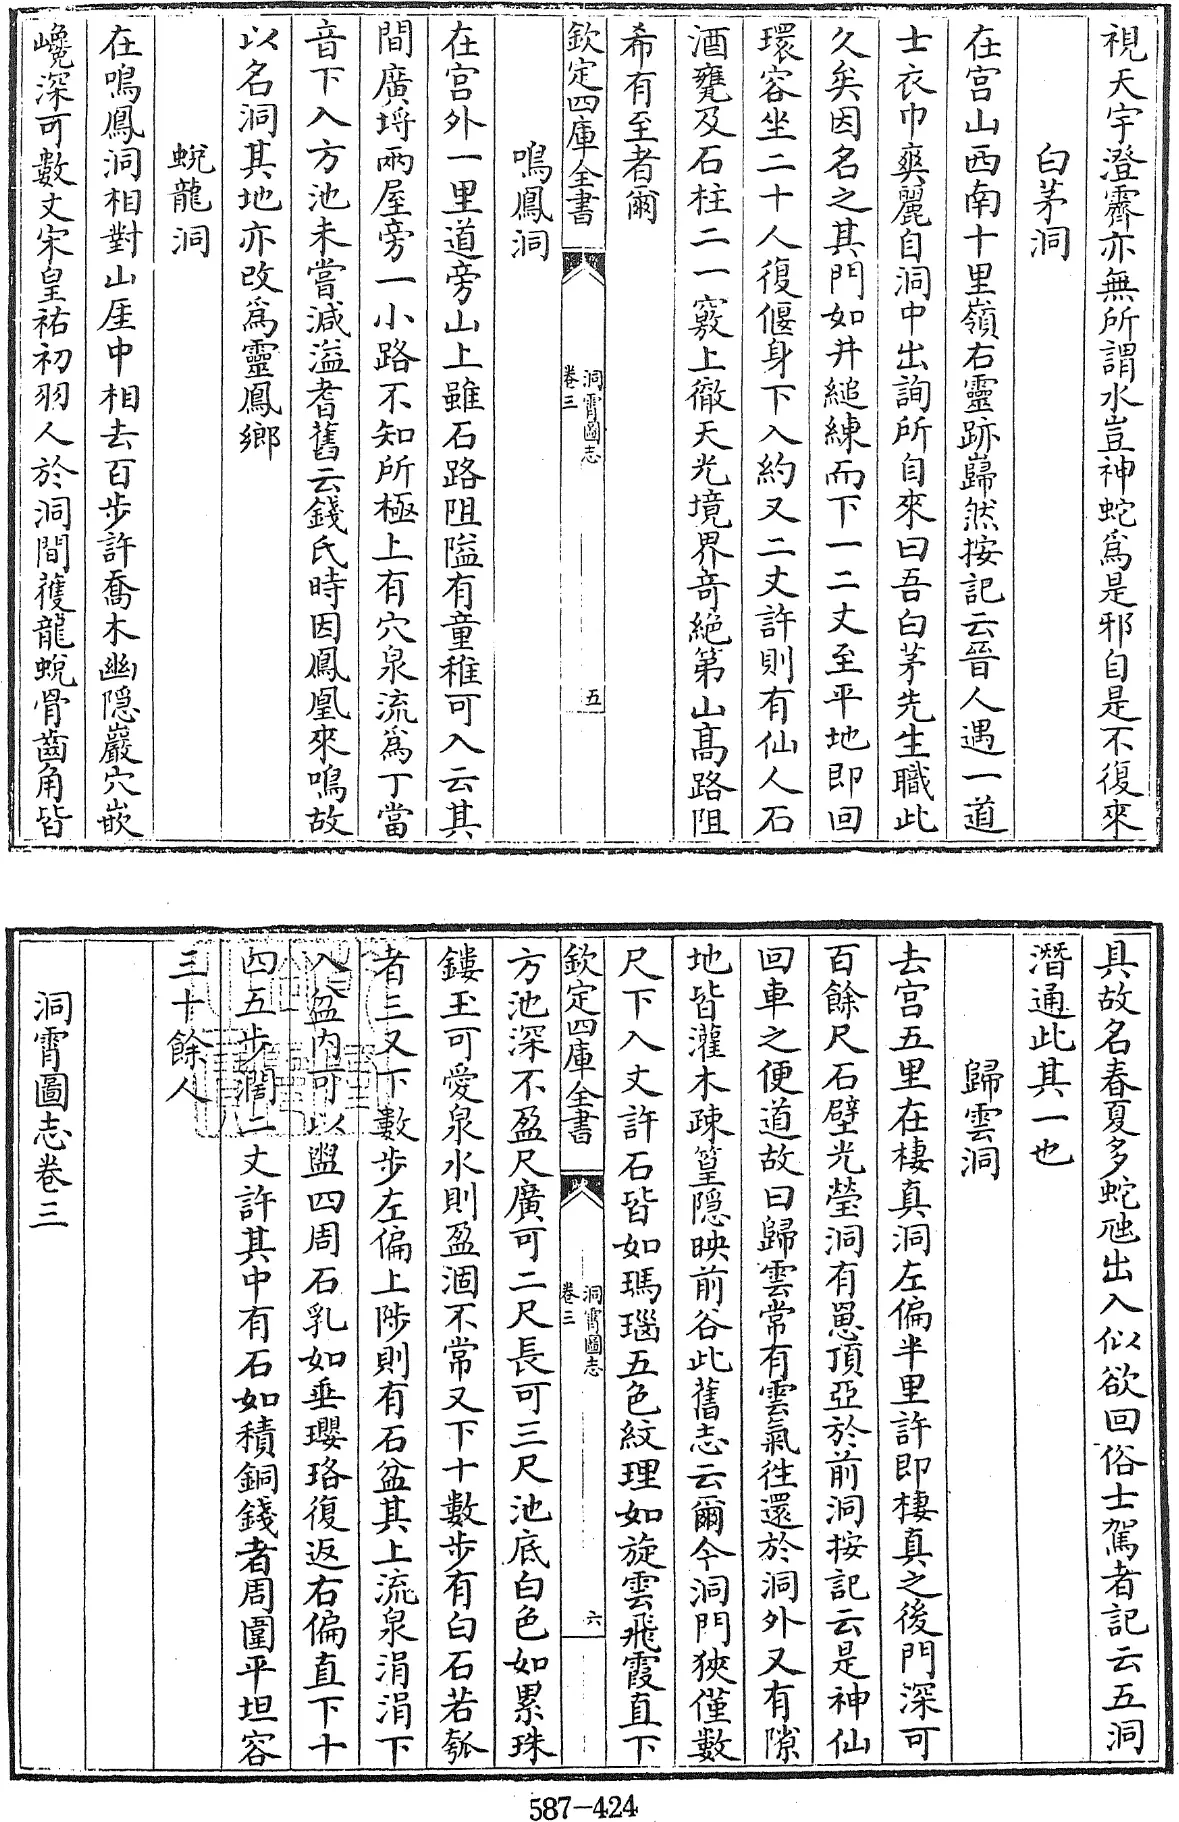 視天宇澄霽亦無所謂水豈神蛇爲是邪自是不復來
白茅洞
在宮山西南十里嶺右靈跡巋然按記云晉人遇一道
士衣巾爽麗自洞中出詢所自來曰吾白茅先生職此
久矣因名之其門如井縋練而下一二丈至平地即回
環容坐二十人復偃身下入約又二丈許則有仙人石
酒甕及石柱二一竅上徹天光境界竒絶第山髙路阻
希有至者爾
欽定四庫全書
洞霄圖志
卷三
五
鳴鳳洞
在宮外一里道旁山上雖石路阻隘有童稚可入云其
間廣埒兩屋旁一小路不知所極上有穴泉流爲丁當
音下入方池未嘗減溢耆舊云錢氏時因鳳凰來鳴故
以名洞其地亦改爲靈鳳鄉
蛻龍洞
在鳴鳳洞相對山厓中相去百步許喬木幽隠巖穴嵌
巉深可數丈宋皇祐初羽人於洞間獲龍蛻骨齒角皆
具故名春夏多蛇虺出入似欲回俗士駕者記云五洞
潛通此其一也
歸雲洞
去宮五里在棲真洞左偏半里許即棲真之後門深可
百餘尺石壁光瑩洞有崽頂亞於前洞按記云是神仙
回車之便道故曰歸雲常有雲氣徃還於洞外又有隙
地皆灌木疎篁隠映前谷此舊志云爾今洞門狹僅數
尺下入丈許石皆如瑪瑙五色紋理如旋雲飛霞直下
欽定四庫全書
洞霄圖志
卷三
六
方池深不盈尺廣可二尺長可三尺池底白色如累珠
鏤玉可愛泉水則盈涸不常又下十數步有白石若瓠
者三又下數步左偏上陟則有石盆其上流泉涓涓下
入盆内可以盥四周石乳如垂瓔珞復返右偏直下十
四五步濶二丈許其中有石如積銅錢者周圍平坦容
三十餘人
洞霄圖志卷三
587-424